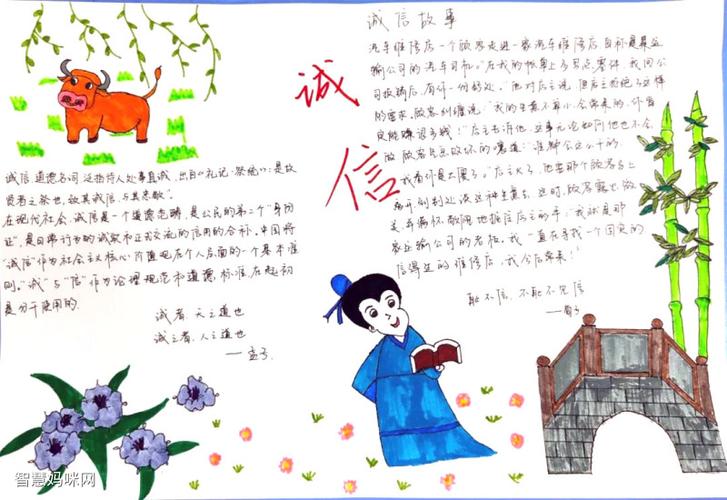 诚信
诚信道德名词,泛指待人处事真诚,出自《礼记·祭统》:是故
贤者之祭也,致其诚信,与其忠敬".
在现代社会,诚信是一个道德范畴,是公民的第二个"身份
证",是日常行为的诚实和正式交流的信用的合称.中国将
"诚信"作为社会主义核心价值观在个人层面的一个基本准
则."诚"与"信"作为论理规范和道德标准在起初
是分开使用的.
诚者,天之道也
诚之者,人之道也
——孟子.
诚信故事
汽车维修店一个顾客走进一家汽车维修店,自称是某运
输公司的汽车司机."在我的帐单上多写点零件,我回公
司报销后,有你一份好处."他对店主说,但店主拒绝了这样
的要求,顾客纠缠说:"我的生意不算小,会常来的,你肯
定能赚很多钱!"店主告诉他,这事无论如何他也不会
做.顾客气急败坏的嚷道:"谁都会这么干的.
我看你是太傻了."店主火了,他要那个顾客马上
离开,到别处谈这种生意去.这时,顾客露出微
笑并满怀敬佩地握住店主的手:"我就是那
家运输公司的老板,我一直在寻找一个固定的
信得过的维修店,我今后常来!"
耻不信,不耻不见信
——荀子
智慧妈咪网